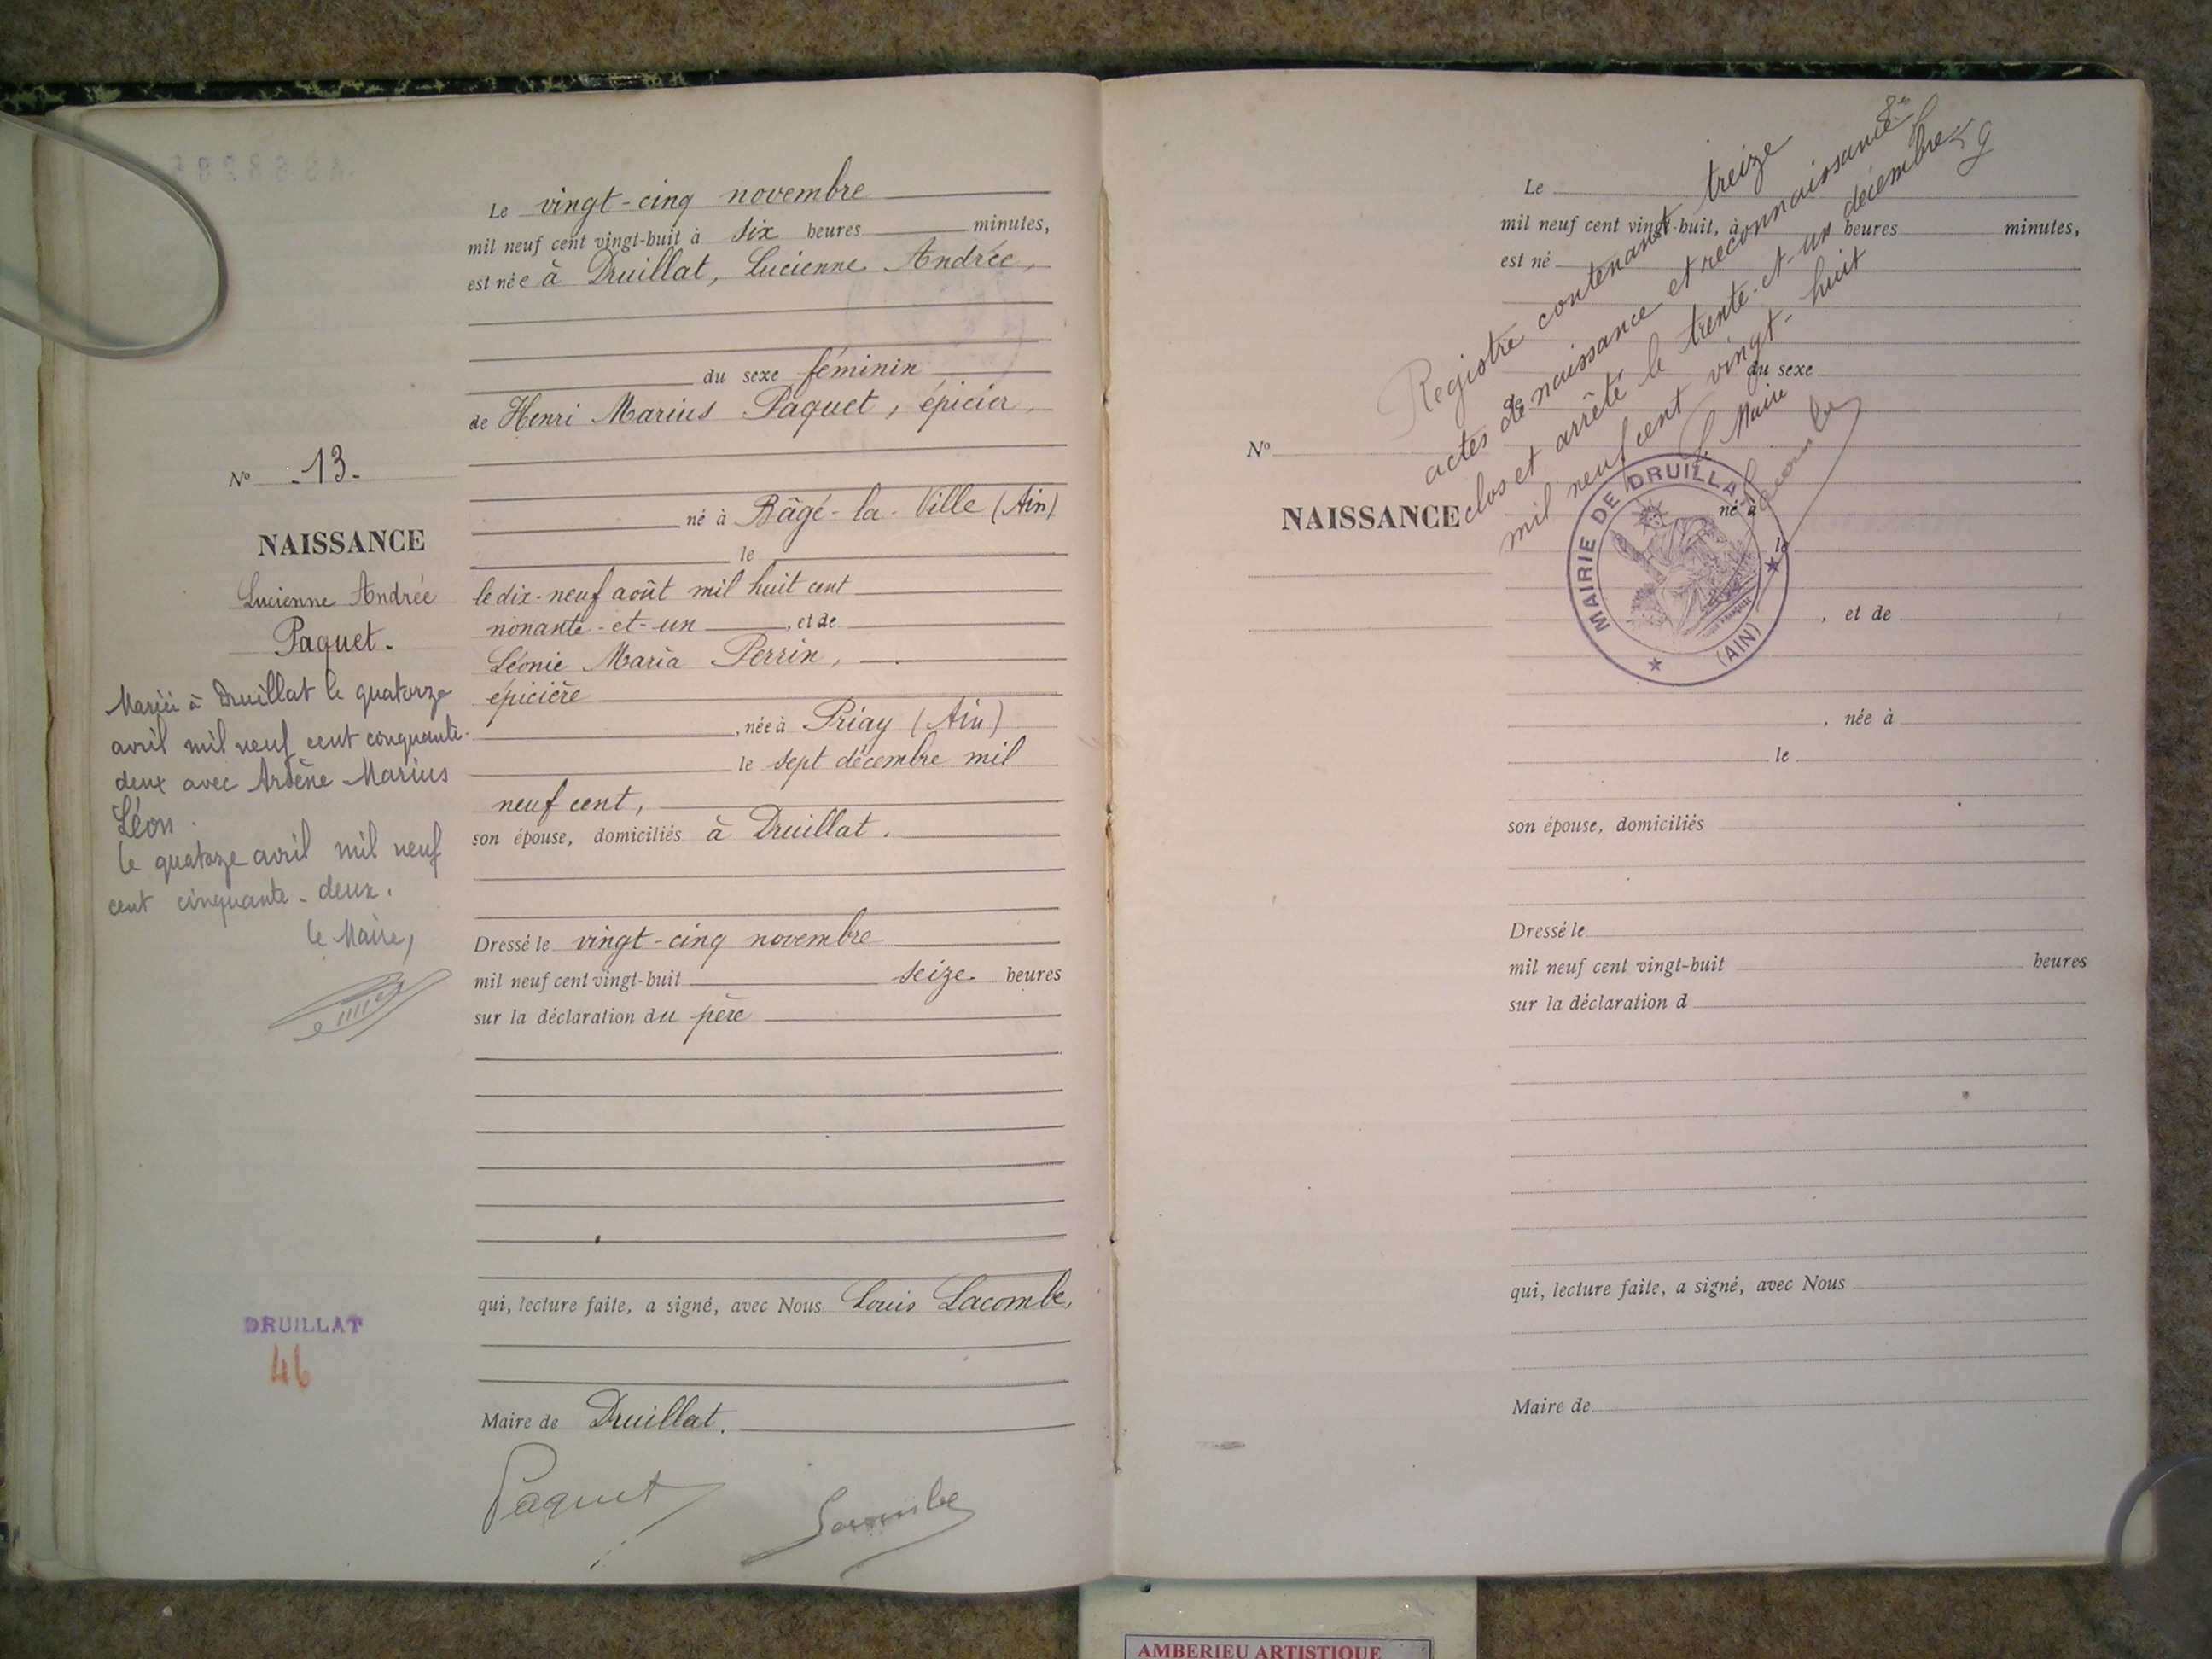 Le vingt-cinq novembre
mil neuf cent vingt-huit à six heures minutes,
est née à Druillat, Lucienne Andrée,
du sexe féminin
de Henri Marius Paquet, épicier,
né à Bâgé-la-Ville (Ain)
le
le dix-neuf août mil huit cent
nonante-et-un, et de
Léonie Maria Perrin,
épicière
, née à Priay (Ain)
le sept décembre mil
neuf cent,
son épouse, domiciliés à Druillat.
Dressé le vingt-cinq novembre
mil neuf cent vingt-huit seize heures
sur la déclaration du père
qui, lecture faite, a signé, avec Nous Louis Lacombe,
Maire de Druillat.
Paquet Lacombe
No -13-
NAISSANCE
Lucienne Andrée
Paquet.
Mariée à Druillat le quatorze
avril mil neuf cent conquante-
deux avec Arsène Marius
Léon.
le quatoze avril mil neuf
cent cinquante-deux.
le Maire,
DRUILLAT
46
Registre contenant treize
actes de naissance et reconnaissance
clos et arrêté le trente-et-un décembre
mil neuf cent vingt-huit
Le Maire
Lacombe
MAIRIE DE DRUILLAT
(AIN)
Le
mil neuf cent vingt-huit, à heures minutes,
est né
du sexe
de
No
NAISSANCE
né à
le
, et de
, née à
le
son épouse, domiciliés
Dressé le
mil neuf cent vingt-huit heures
sur la déclaration d
qui, lecture faite, a signé, avec Nous
Maire de
AMBERIEU ARTISTIQUE